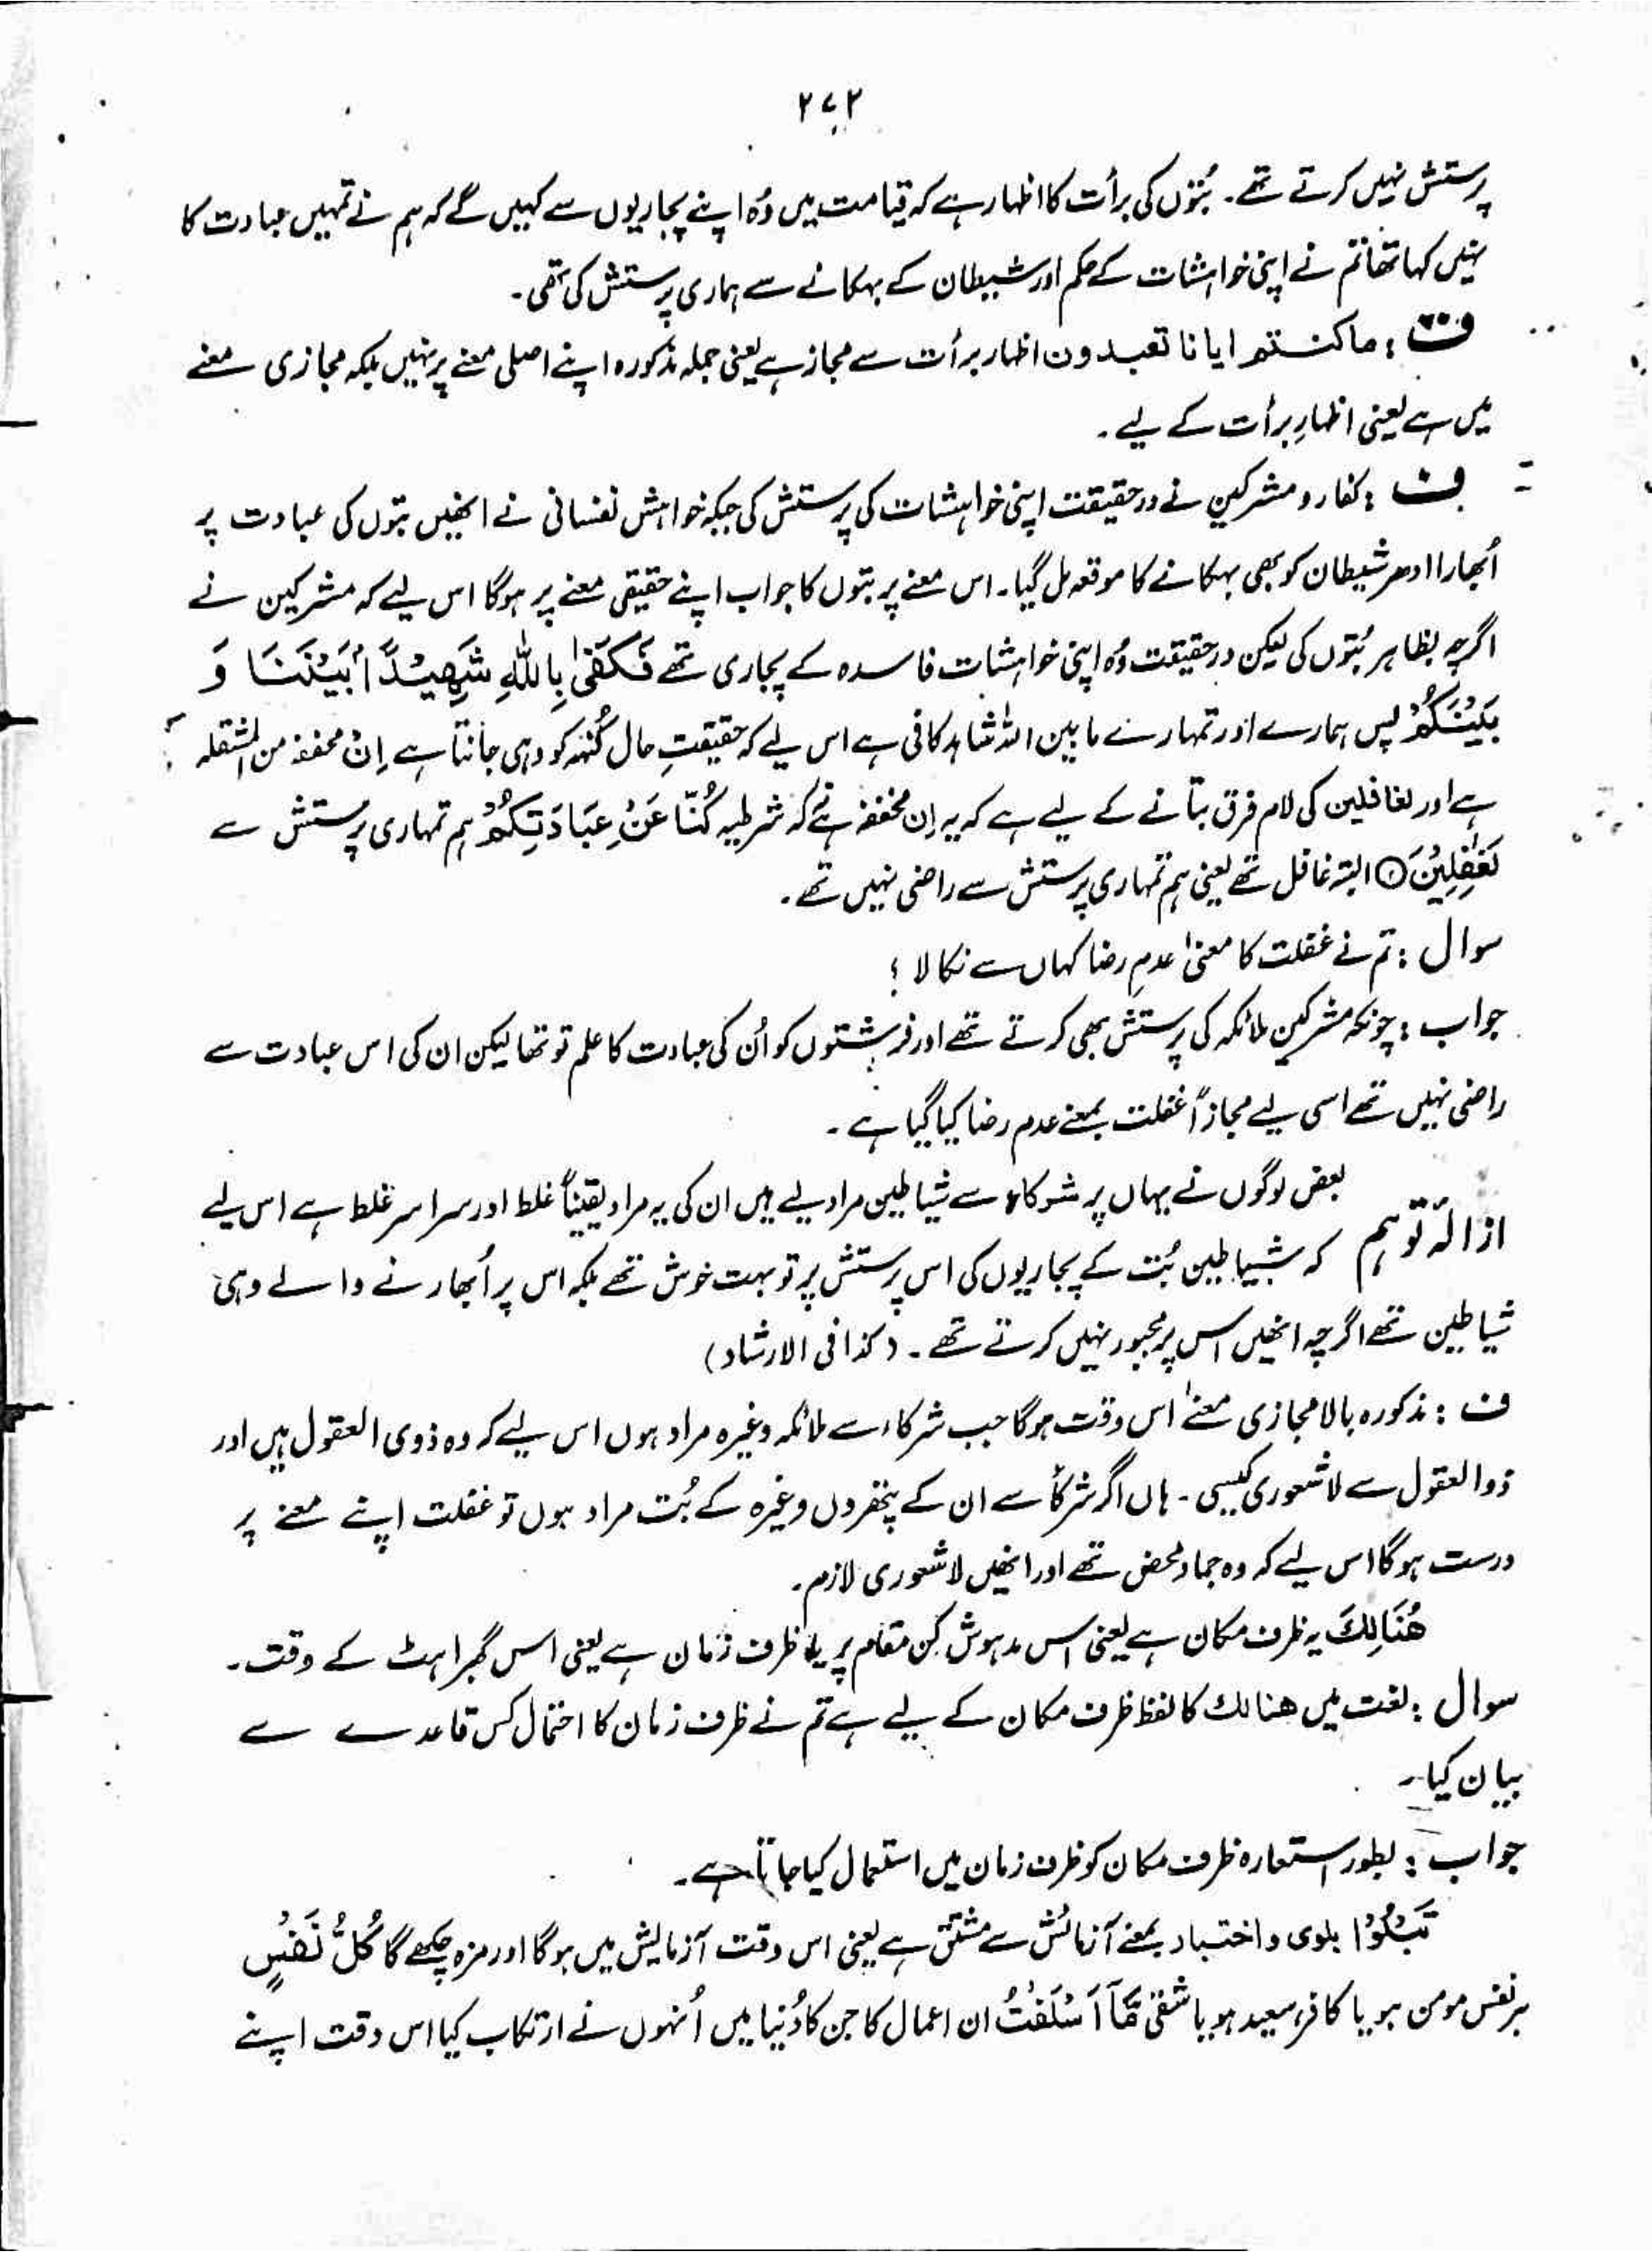 ۲۷۲
پرستش نہیں کرتے تھے۔ بُتوں کی برأت کا اظہار ہے کہ قیامت میں وُہ اپنے پجاریوں سے کہیں گے کہ ہم نے تمہیں عبادت کا
نہیں کہا تھا تم نے اپنی خواہشات کے حکم اور شیطان کے بہکانے سے ہماری پرستش کی تھی۔
ف : ماکنتم ایانا تعبدون اظہار برأت سے مجاز ہے یعنی جملہ مذکورہ اپنے اصلی معنے پر نہیں بلکہ مجازی معنے
میں ہے یعنی اظہارِ برأت کے لیے۔
ف : کفار و مشرکین نے درحقیقت اپنی خواہشات کی پرستش کی جبکہ خواہش نفسانی نے انھیں بتوں کی عبادت پر
اُبھارا ادھر شیطان کو بھی بہکانے کا موقعہ مل گیا۔ اس معنے پر بتوں کا جواب اپنے حقیقی معنے پر ہوگا اس لیے کہ مشرکین نے
اگرچہ بظاہر بُتوں کی لیکن درحقیقت وُہ اپنی خواہشات فاسدہ کے پجاری تھے فَكَفٰى بِاللّٰهِ شَهِيْدًۢا بَيْنَنَا وَ
بَيْنَكُمْ پس ہمارے اور تمہارے مابین اللہ شاہد کافی ہے اس لیے کہ حقیقتِ حال کُنہہ کو وہی جانتا ہے اِنْ مخففہ من المثقلہ
ہے اور لغافلین کی لام فرق بتانے کے لیے ہے کہ یہ اِن مخففہ ہے کہ شرطیہ كُنَّا عَنْ عِبَادَتِكُمْ ہم تمہاری پرستش سے
لَغٰفِلِيْنَ ۝ البتہ غافل تھے یعنی ہم تمہاری پرستش سے راضی نہیں تھے۔
سوال : تم نے غفلت کا معنیٰ عدمِ رضا کہاں سے نکالا ؟
جواب : چونکہ مشرکین ملائکہ کی پرستش بھی کرتے تھے اور فرشتوں کو اُن کی عبادت کا علم تو تھا لیکن ان کی اس عبادت سے
راضی نہیں تھے اسی لیے مجازاً غفلت بمعنے عدم رضا کیا گیا ہے۔
بعض لوگوں نے یہاں پر شرکاء سے شیاطین مراد لیے ہیں ان کی یہ مراد یقیناً غلط اور سراسر غلط ہے اس لیے
ازالہ توہم کہ شیاطین بُت کے پجاریوں کی اس پرستش پر تو بہت خوش تھے بلکہ اس پر اُبھارنے والے وہی
شیاطین تھے اگرچہ انھیں اس پر مجبور نہیں کرتے تھے۔ (کذا فی الارشاد)
ف : مذکورہ بالا مجازی معنےٰ اس وقت ہوگا جب شرکاء سے ملائکہ وغیرہ مراد ہوں اس لیے کہ وہ ذوی العقول ہیں اور
ذوالعقول سے لاشعوری کیسی۔ ہاں اگر شرکأ سے ان کے پتھروں وغیرہ کے بُت مراد ہوں تو غفلت اپنے معنے پر
درست ہوگا اس لیے کہ وہ جماد محض تھے اور انھیں لاشعوری لازم۔
هُنَالِكَ یہ ظرف مکان ہے یعنی اس مدہوش کُن مقام پر یا ظرف زمان ہے یعنی اس گھبراہٹ کے وقت۔
سوال : لغت میں ھنالك کا لفظ ظرف مکان کے لیے ہے تم نے ظرف زمان کا احتمال کس قاعدے سے
بیان کیا۔
جواب : بطور استعارہ ظرف مکان کو ظرف زمان میں استعمال کیا جاتا ہے۔
تَبْلُوْا بلوی و اختبار بمعنے آزمائش سے مشتق ہے یعنی اس وقت آزمایش میں ہوگا اور مزہ چکھے گا كُلُّ نَفْسٍ
ہر نفس مومن ہو یا کافر، سعید ہو یا شقی مَّآ اَسْلَفَتْ ان اعمال کا جن کا دُنیا میں اُنہوں نے ارتکاب کیا اس وقت اپنے